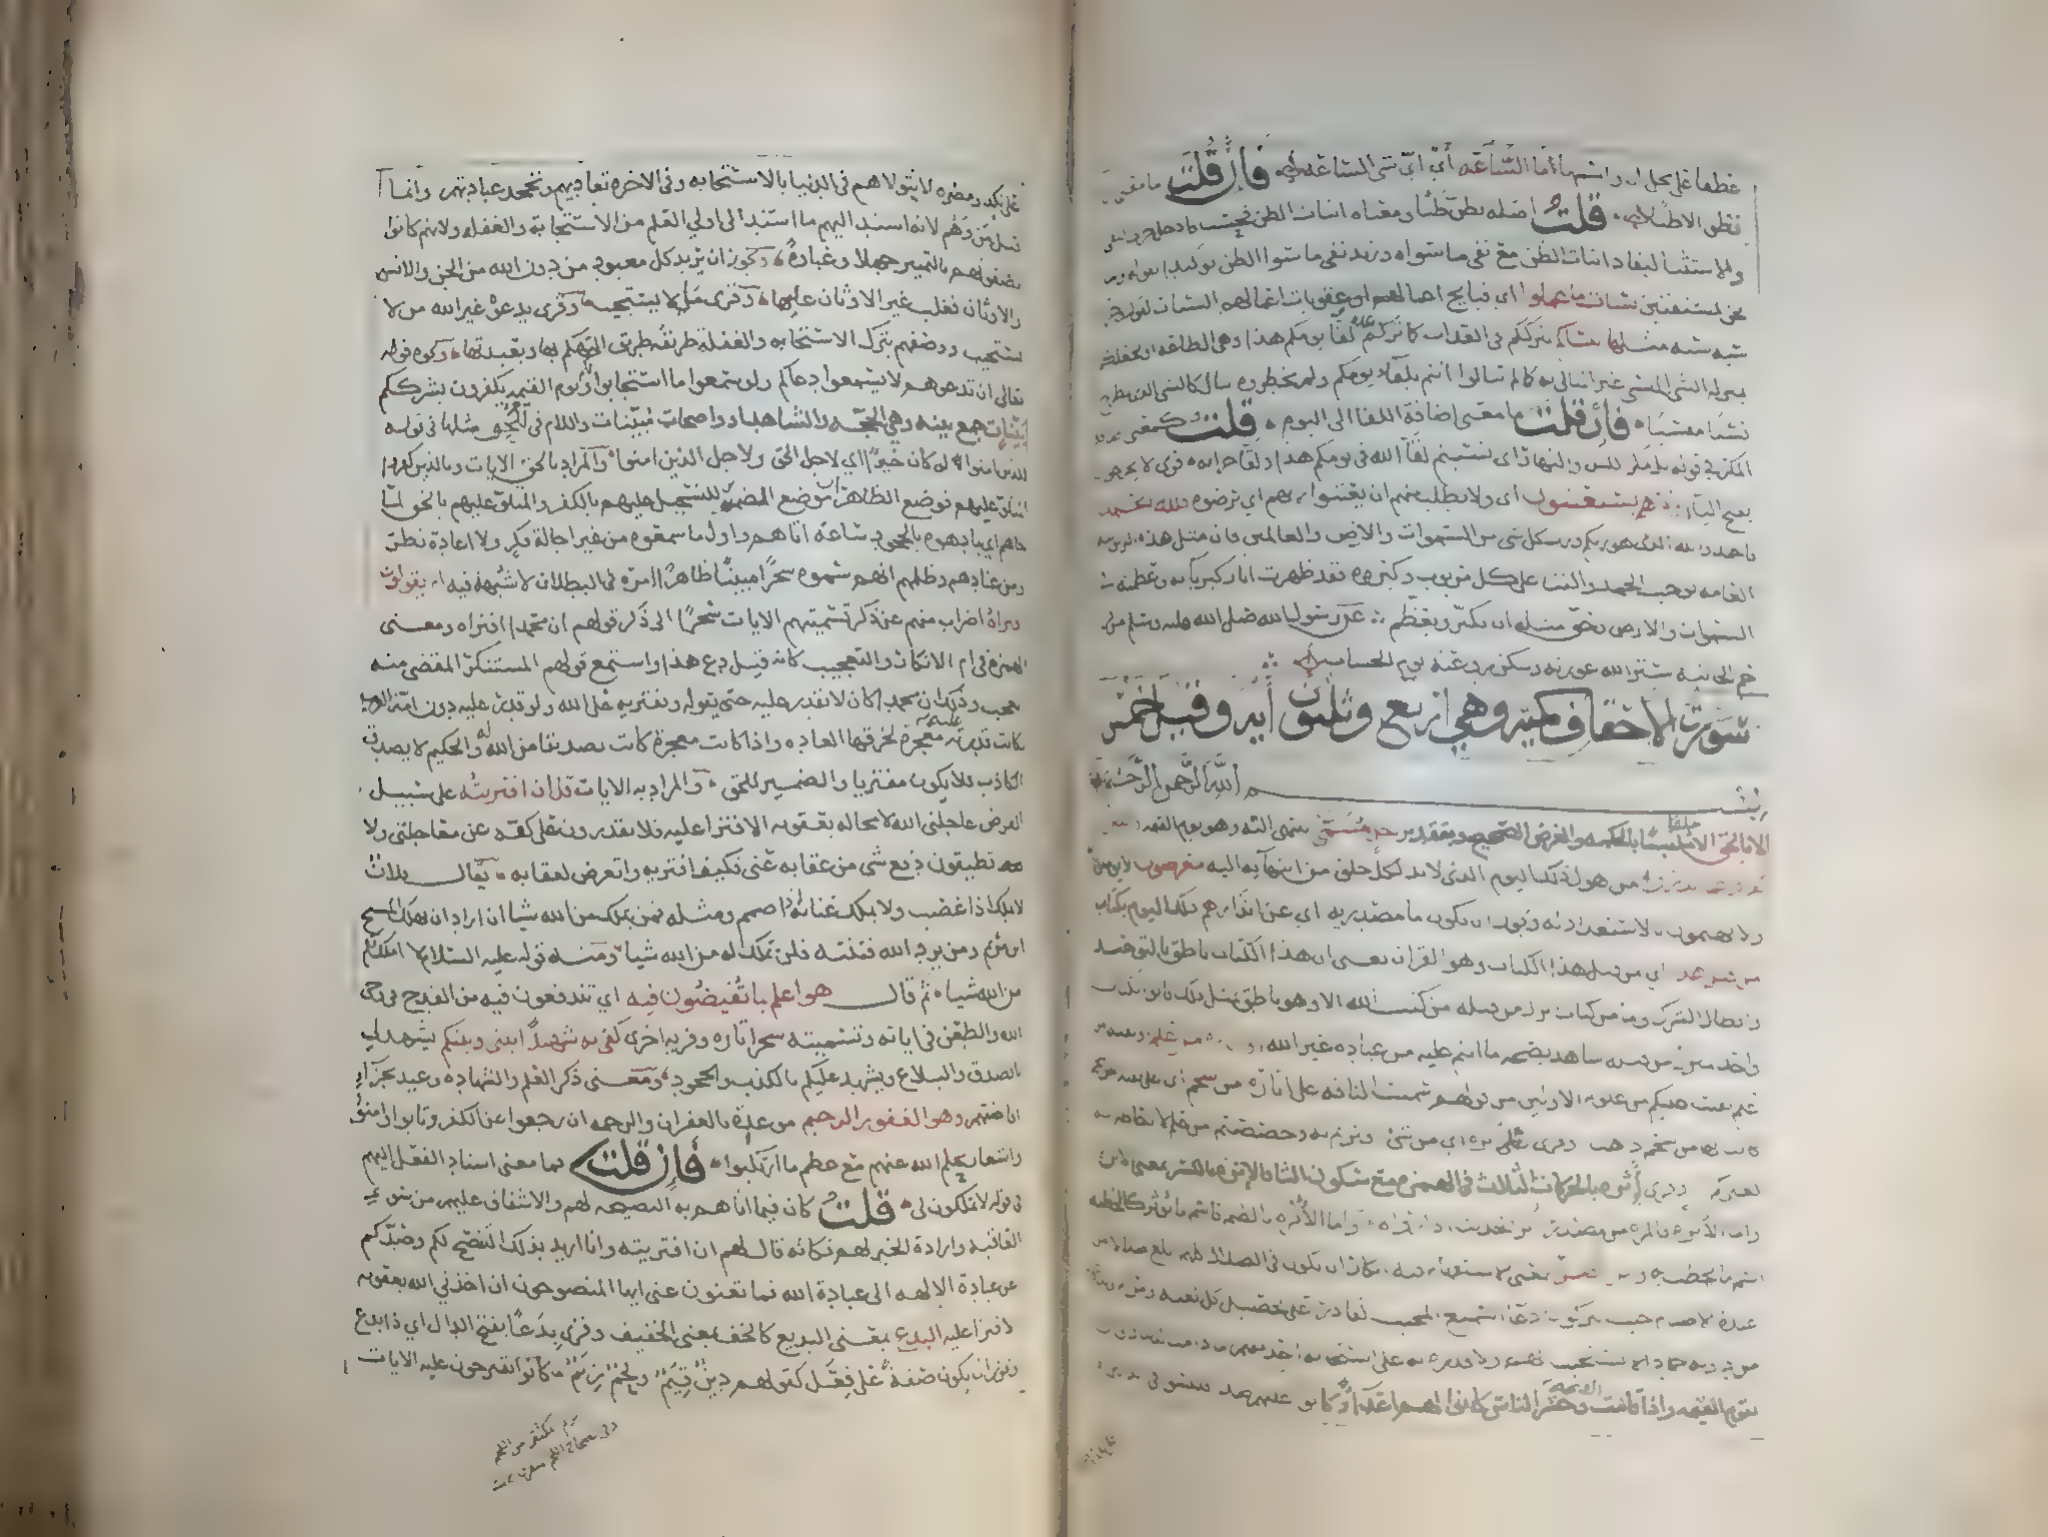 عطفا على محل ان واسمها ما الساعة أي أي شي الساعة فإن قلت ما معنى
نظن الا ظنا قلت اصله نظن ظنا ومعناه اثبات الظن فحسب فادخل حرف النفي
والاستثنا ليفاد اثبات الظن مع نفي ما سواه وزيد نفي ما سوا الظن توكيدا بقوله وما
نحن بمستيقنين سيئات ما عملوا اي قبايح اعمالهم او عقوبات اعمالهم السيات كقوله
سيئة مثلها ننساكم نترككم في العذاب كما تركتم لقا يومكم هذا وهي الطاعة
بمنزلة الشي المنسي غير المبالى به كما لم تبالوا انتم بلقاء يومكم ولم تخطروه ببال كالشي الذي يطرح
نسيا منسيا فإن قلت ما معنى اضافة اللقا الى اليوم قلت كمعنى
المكر في قوله بل مكر الليل والنهار اي نسيتم لقاء الله في يومكم هذا ولقا جزايه قرى لا يخرجون
بفتح اليا ولا هم يستعتبون اي ولا يطلب منهم ان يعتبوا ربهم اي يرضوه فلله الحمد
فاحمدوا الله الذي هو ربكم ورب كل شي من السموات والارض والعالمين فان مثل هذه الربوبية
العامة توجب الحمد والثنا على كل مربوب وكبروه فقد ظهرت اثار كبريائه وعظمته
السموات والارض وحق مثله ان يكبر ويعظم عن رسول الله صلى الله عليه وسلم من قرا
حم الجاثية ستر الله عورته وسكن روعته يوم الحساب
سورة الاحقاف مكية وهي اربع وثلثون آية وقيل خمس
بسم الله الرحمن الرحيم
الا بالحق الا خلقا ملتبسا بالحكمة والغرض الصحيح وبتقدير اجل مسمى ينتهى اليه وهو يوم القيمة
من هول ذلك اليوم الذي لا بد لكل خلق من انتهائه اليه معرضون لا يومنون
ولا يهتمون بالاستعداد له ويجوز ان تكون ما مصدرية اي عن انذارهم ذلك اليوم بكتاب
من قبل هذا اي من قبل هذا الكتاب وهو القران يعني ان هذا الكتاب ناطق بالتوحيد
وابطال الشرك وما من كتاب انزل من قبله من كتب الله الا وهو ناطق بمثل ذلك فاتوا بكتاب
واحد منزل من قبله شاهد بصحة ما انتم عليه من عبادة غير الله او اثارة من علم او بقية من
علم بقيت عليكم من علوم الاولين من قولهم سمنت الناقة على اثارة من شحم اي على بقية شحم
كانت بها من شحم ذاهب وقرى اثرة اي من شي اوثرتم به وخصصتم من علم لا احاطة به
لغيركم وقرى أثرة بالحركات الثلاث في الهمزة مع سكون الثا فالإثرة بالكسر بمعنى الاثرة
واما الاثرة فالمرة من مصدر اثر الحديث اذا رواه واما الأُثرة بالضم فاسم ما يوثر كالخطبة
اسم ما يخطب به ومن اضل معنى الاستفهام فيه انكار ان يكون في الضلال كلهم ابلغ ضلالا من
عبدة الاصنام حيث يتركون دعا السميع المجيب القادر على تحصيل كل بغية ومرام ويدعون
من دونه جمادا لا يستجيب لهم ولا قدرة به على استجابة احد منهم ما دامت الدنيا
تقوم القيمة واذا قامت القيمة وحشر الناس كانوا لهم اعداء وكانوا عليهم ضدا فليسوا في الدارين
على نكد ومضرة لا يتولاهم في الدنيا بالاستجابة وفي الاخرة تعاديهم وتجحد عبادتهم وانما
قيل من وهم لانه اسند اليهم ما استند الى اولي العلم من الاستجابة والغفلة ولانهم كانوا
يصفونهم بالتمييز جهلا وغباوة ويجوز ان يريد كل معبود من دون الله من الجن والانس
والاوثان فغلب غير الاوثان عليها وقرى ما لا يستجيب وقرى يدعو غير الله من لا
يستجيب ووصفهم بترك الاستجابة والغفلة طريقه طريق التهكم بها وبعبدتها ونحوه قوله
تعالى ان تدعوهم لا يسمعوا دعاكم ولو سمعوا ما استجابوا لكم ويوم القيمة يكفرون بشرككم
بينات جمع بينة وهي الحجة والشاهد او واضحات مبينات واللام في للحق مثلها في قوله
للذين امنوا لو كان خيرا اي لاجل الحق ولاجل الذين امنوا والمراد بالحق الايات وبالذين كفروا
المتلو عليهم فوضع الظاهران موضع المضمرين للتسجيل عليهم بالكفر والمتلو عليهم بالحق لما
جاهم اي بادهوه بالجحود ساعة اتاهم واول ما سمعوه من غير اجالة فكر ولا اعادة نظر
ومن عنادهم وظلمهم انهم سموه سحرا مبينا ظاهرا امره في البطلان لا شبهة فيه ام يقولون
افتراه اضراب منهم عن ذكر تسميتهم الايات سحرا الى ذكر قولهم ان محمدا افتراه ومعنى
الهمزة في ام الانكار والتعجيب كانه قيل دع هذا واستمع قولهم المستنكر المقضي منه
العجب وذلك ان محمدا كان لا يقدر عليه حتى يقوله ويفتريه على الله ولو قدر عليه دون امة العرب
لكانت قدرته عليه معجزة لخرقها العادة واذا كانت معجزة كانت تصديقا من الله له والحكيم لا يصدق
الكاذب فلا يكون مفتريا والضمير للحق والمراد به الايات قل ان افتريته على سبيل
الفرض عاجلني الله لا محالة بعقوبة الافترا عليه فلا تقدرون على كفه عن معاجلتي ولا
تطيقون دفع شي من عقابه عني فكيف افتريه واتعرض لعقابه يقال فلان
لا يملك اذا غضب ولا يملك عنانه اذا صمم ومثله فمن يملك من الله شيا ان اراد ان يهلك المسيح
ابن مريم ومن يرد الله فتنته فلن تملك له من الله شيا ومنه قوله عليه السلام لا املك لكم
من الله شيا ثم قال هو اعلم بما تفيضون فيه اي تندفعون فيه من القدح في وحي
الله والطعن في اياته وتسميته سحرا تارة وفرية اخرى كفى به شهيدا بيني وبينكم يشهد لي
بالصدق والبلاغ ويشهد عليكم بالكذب والجحود ومعنى ذكر العلم والشهادة وعيد بجزاء
افاضتهم وهو الغفور الرحيم موعدة بالغفران والرحمة ان رجعوا عن الكفر وتابوا وامنوا
واشعار بحلم الله عنهم مع عظم ما ارتكبوا فإن قلت فما معنى اسناد الفعل اليهم
في قوله لا تملكون لي قلت كان فيما اتاهم به النصيحة لهم والاشفاق عليهم من سوء
العاقبة وارادة الخير لهم فكانه قال لهم ان افتريته وانا اريد بذلك النصح لكم وصدكم
عن عبادة الالهة الى عبادة الله فما تغنون عني ايها المنصوحون ان اخذني الله بعقوبة
الافترا عليه البدع بمعنى البديع كالخف بمعنى الخفيف وقرى بدعا بفتح الدال اي ذا بدع
ويجوز ان يكون صفة على فعل كقولهم دين قيم ولحم زيم كانوا يقترحون عليه الايات